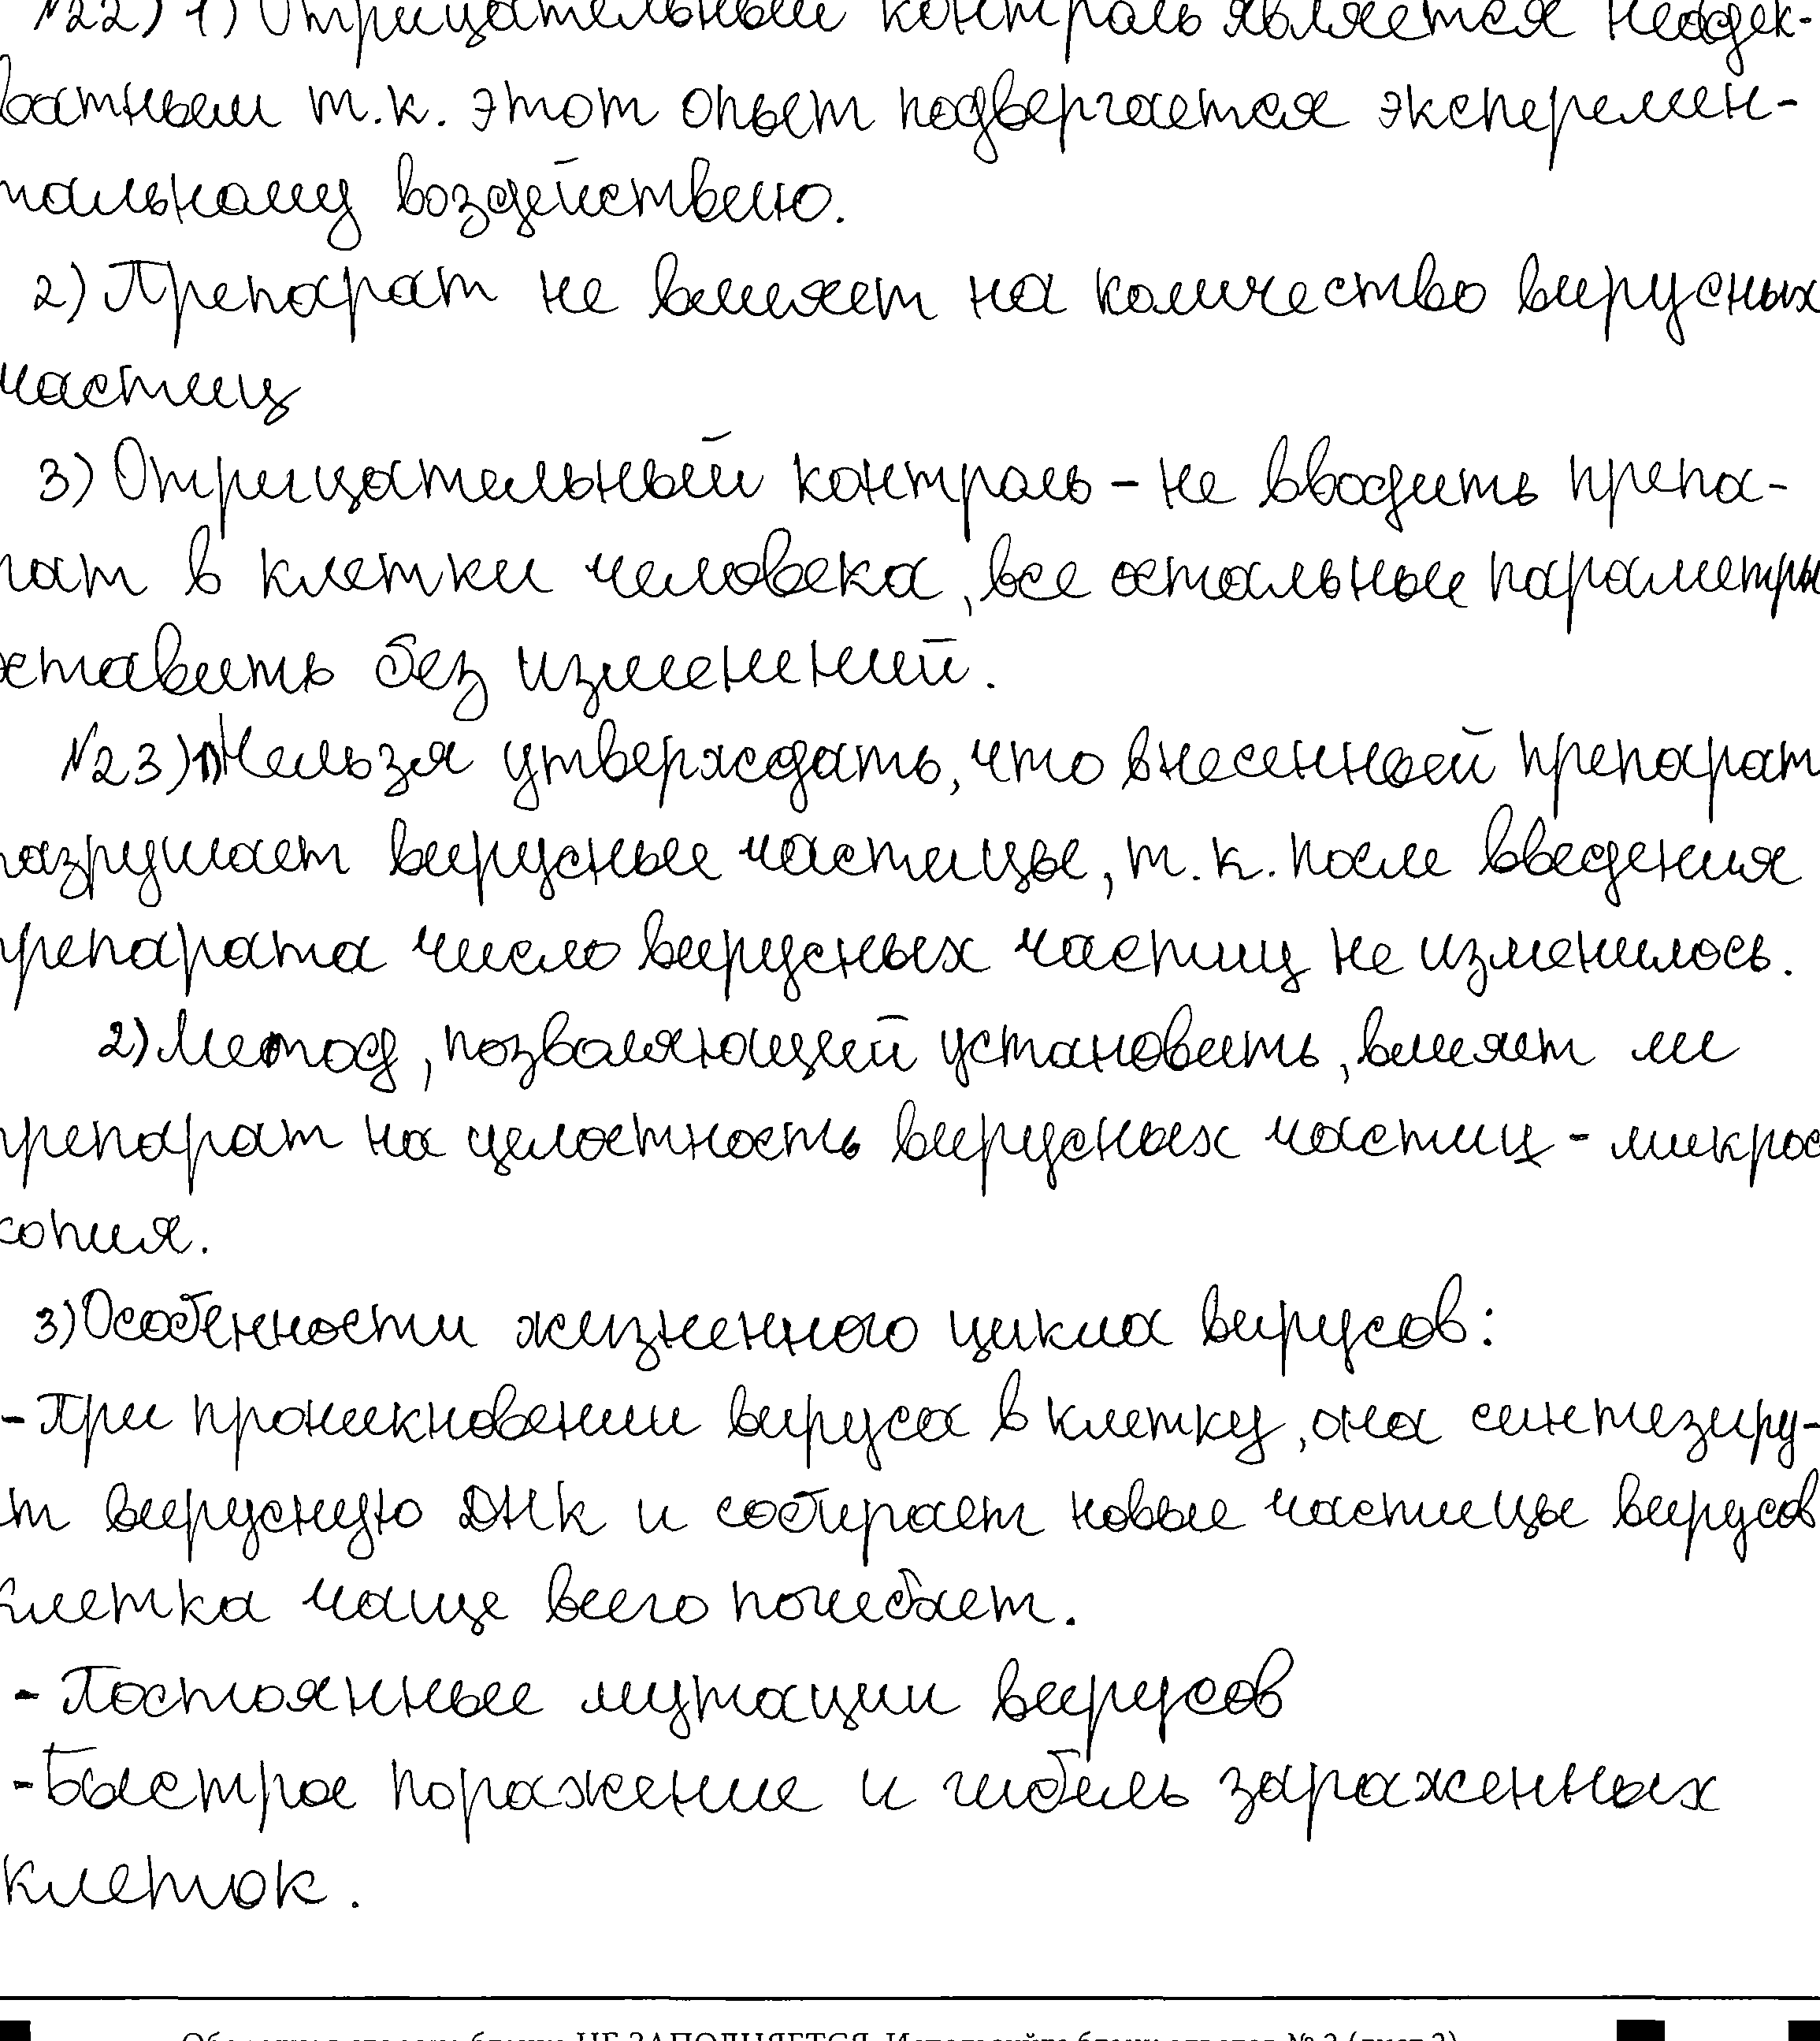 №22) 1) Отрицательный контроль является неадек-
ватным т.к. этот опыт подвергается эксперемен-
тальному воздействию.
2) Препарат не влияет на количество вирусных
частиц
3) Отрицательный контроль - не вводить препа-
рат в клетки человека, все остальные параметры
оставить без изменений.
№23) 1) Нельзя утверждать, что внесенный препарат
разрушает вирусные частицы, т.к. после введения
препарата число вирусных частиц не изменилось.
2) Метод, позволяющий установить, влияет ли
препарат на целостность вирусных частиц - микрос
копия.
3) Особенности жизненного цикла вирусов:
- При проникновении вируса в клетку, она синтезиру-
ет вирусную ДНК и собирает новые частицы вирусов
Клетка чаще всего погибает.
- Постоянные мутации вирусов
- Быстрое поражение и гибель зараженных
клеток.
Оборотная сторона бланка НЕ ЗАПОЛНЯЕТСЯ. Используйте бланк ответов № 2 (лист 2)